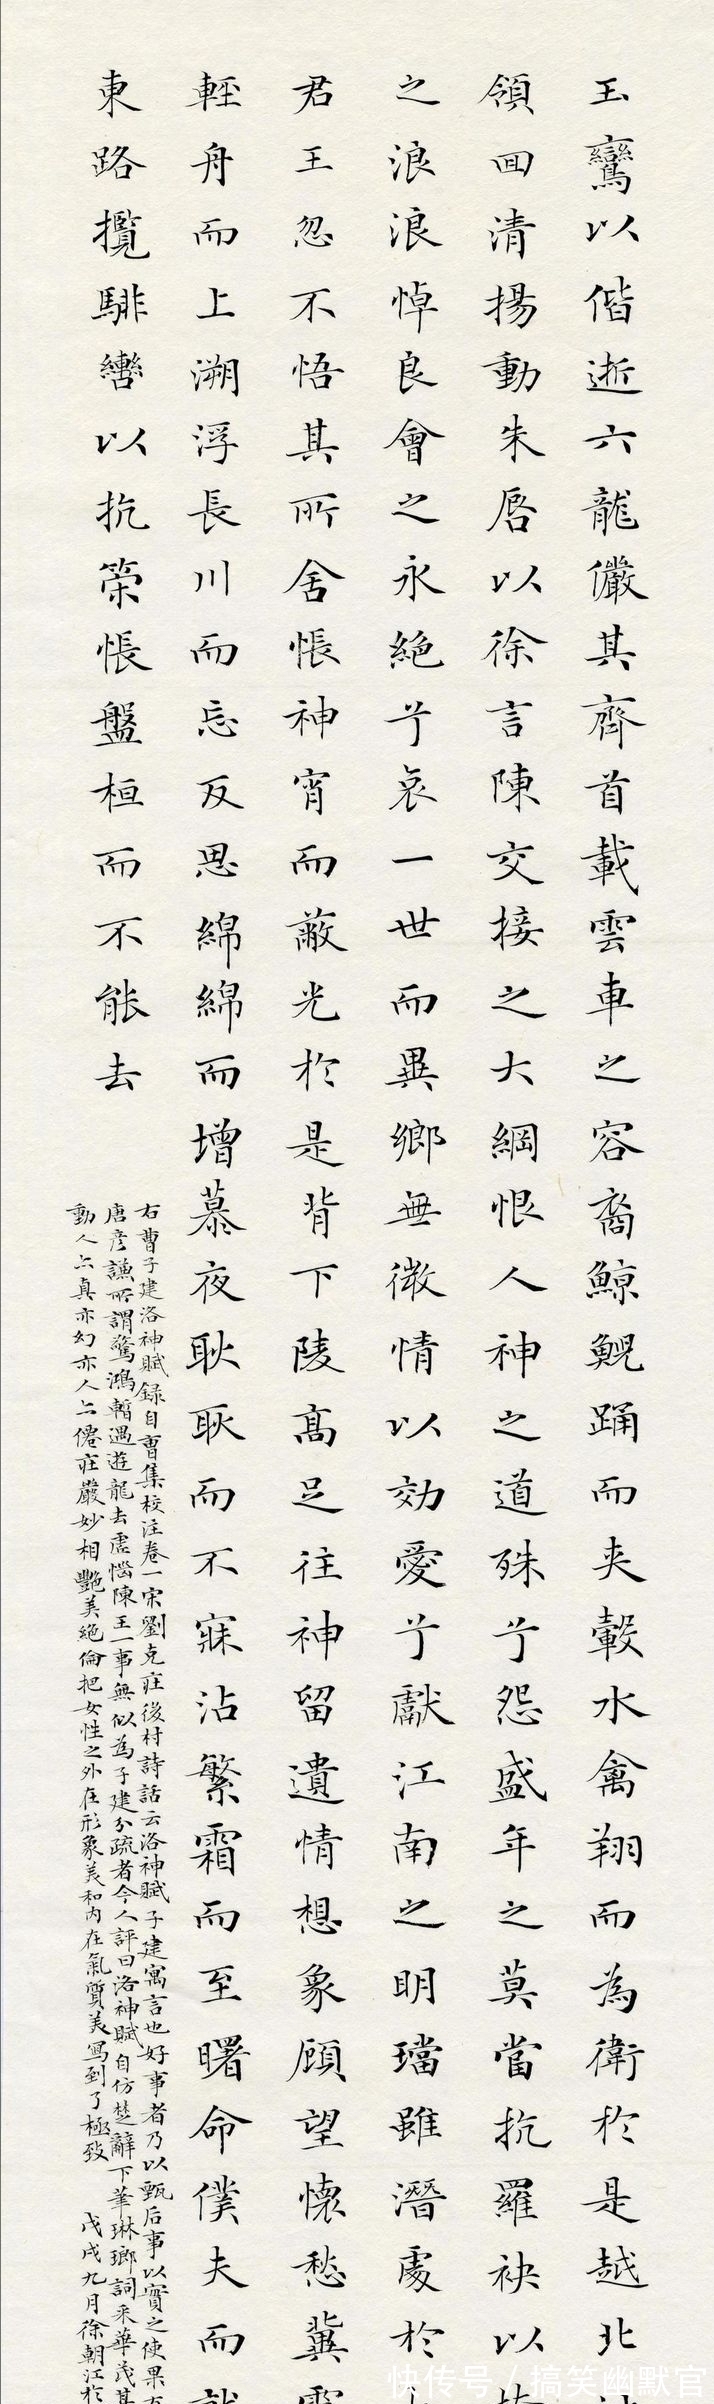 玉鸞以偕逝六龍儼其齊首載雲車之容裔鯨鯢踊而夾轂水禽翔而為衛於是越北
領回清揚動朱唇以徐言陳交接之大綱恨人神之道殊兮怨盛年之莫當抗羅袂以
之浪浪悼良會之永絕兮哀一世而異鄉無微情以効愛兮獻江南之明璫雖潛處於
君王忽不悟其所舍悵神宵而蔽光於是背下陵高足往神留遺情想象顧望懷愁冀
輕舟而上溯浮長川而忘反思綿綿而增慕夜耿耿而不寐沾繁霜而至曙命僕夫而就
東路攬騑轡以抗策悵盤桓而不能去
右曹子建洛神賦錄自曹集校注卷一宋劉克莊後村詩話云洛神賦子建寓言也好事者乃以甄后事以實之使果有
唐彥謙所謂驚鴻暫過遊龍去虛惱陳王一事無似為子建分疏者今人評曰洛神賦自仿楚辭下筆琳瑯詞采華茂其
動人亦真亦幻亦人亦僊莊嚴妙相艷美絕倫把女性之外在形象美和內在氣質美寫到了極致 戊戌九月徐朝江於
快传号/搞笑幽默官